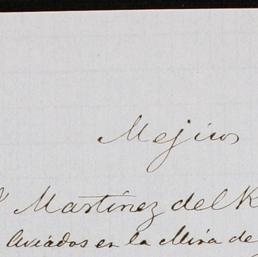 Mejico
Martinez del R
Aviados en la Mina de